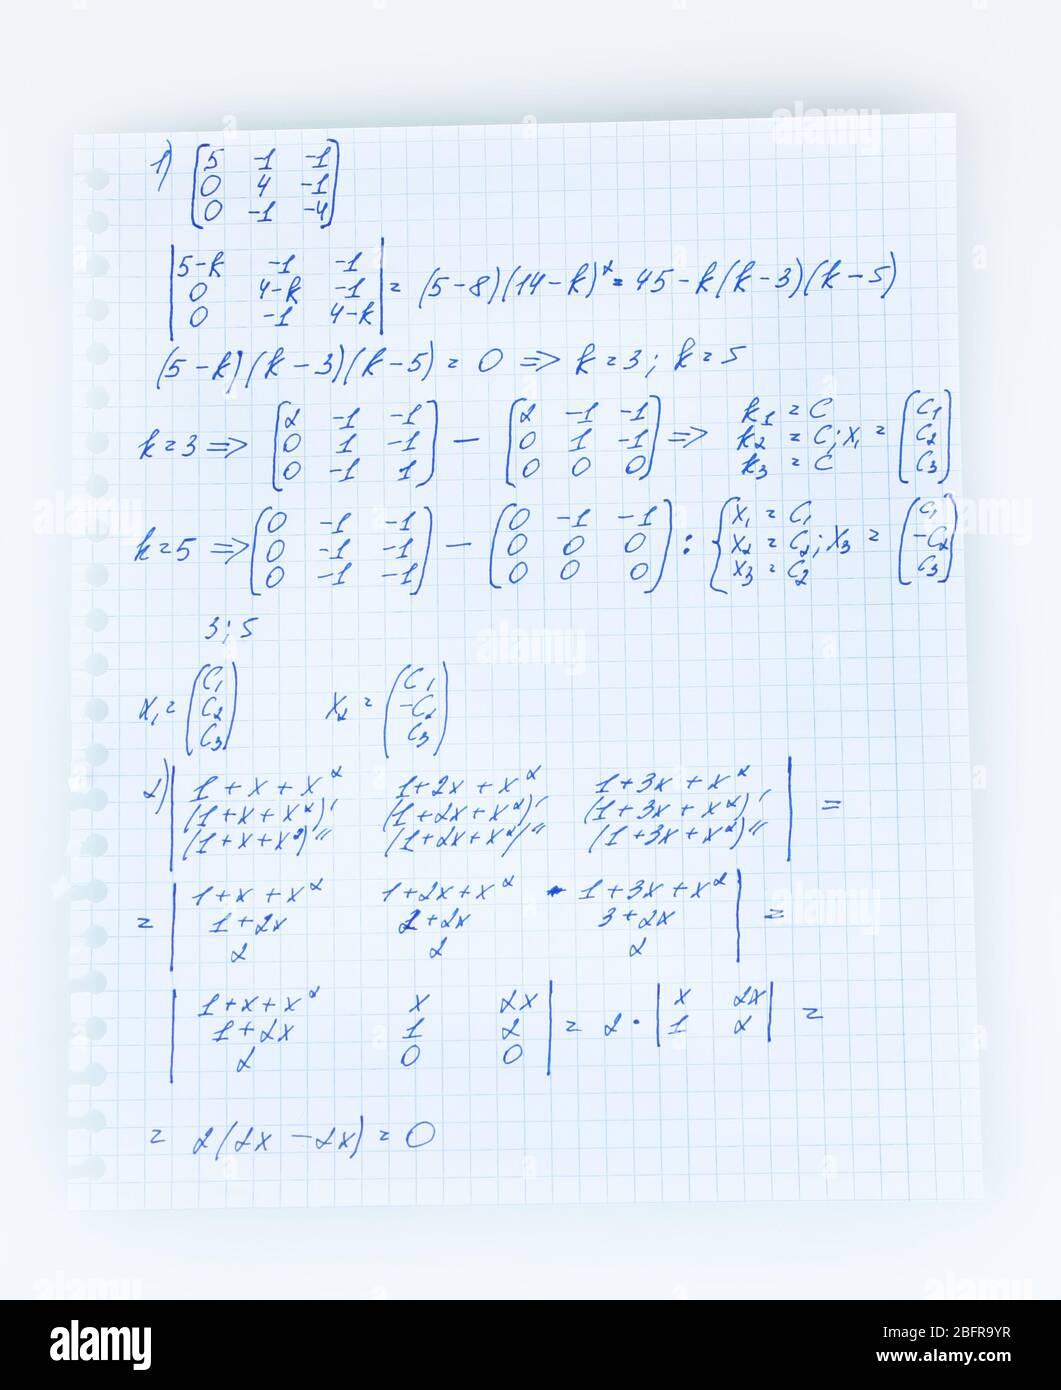 1) [5 -1 -1
0 4 -1
0 -1 -4]
|5-k -1 -1
0 4-k -1
0 -1 4-k| = (5-8)(14-k)² = 45-k(k-3)(k-5)
(5-k)(k-3)(k-5) = 0 ⇒ k=3; k=5
k=3 ⇒ [2 -1 -1
0 1 -1
0 -1 1] — [2 -1 -1
0 1 -1
0 0 0] ⇒ k₁ = C
k₂ = C; x₁ = (C₁
k₃ = C
C₂
C₃)
k=5 ⇒ [0 -1 -1
0 -1 -1
0 -1 -1] — [0 -1 -1
0 0 0
0 0 0] : {x₁ = C₁
x₂ = C₂; x₃ = (C₁
x₃ = C₂
-C₂
C₃)
3; 5
x₁ = (C₁
C₂
C₃) x₂ = (C₁
-C₂
C₃)
2) |1+x+x² 1+2x+x² 1+3x+x²
(1+x+x²)' (1+2x+x²)' (1+3x+x²)'
(1+x+x²)" (1+2x+x²)" (1+3x+x²)"| =
= |1+x+x² 1+2x+x² 1+3x+x²
1+2x 2+2x 3+2x
2 2 2| =
|1+x+x² x 2x
1+2x 1 2
2 0 0| = 2 · |x 2x
1 2| =
= 2(2x-2x) = 0
alamy
alamy
Image ID: BFR9YR
www.alamy.com